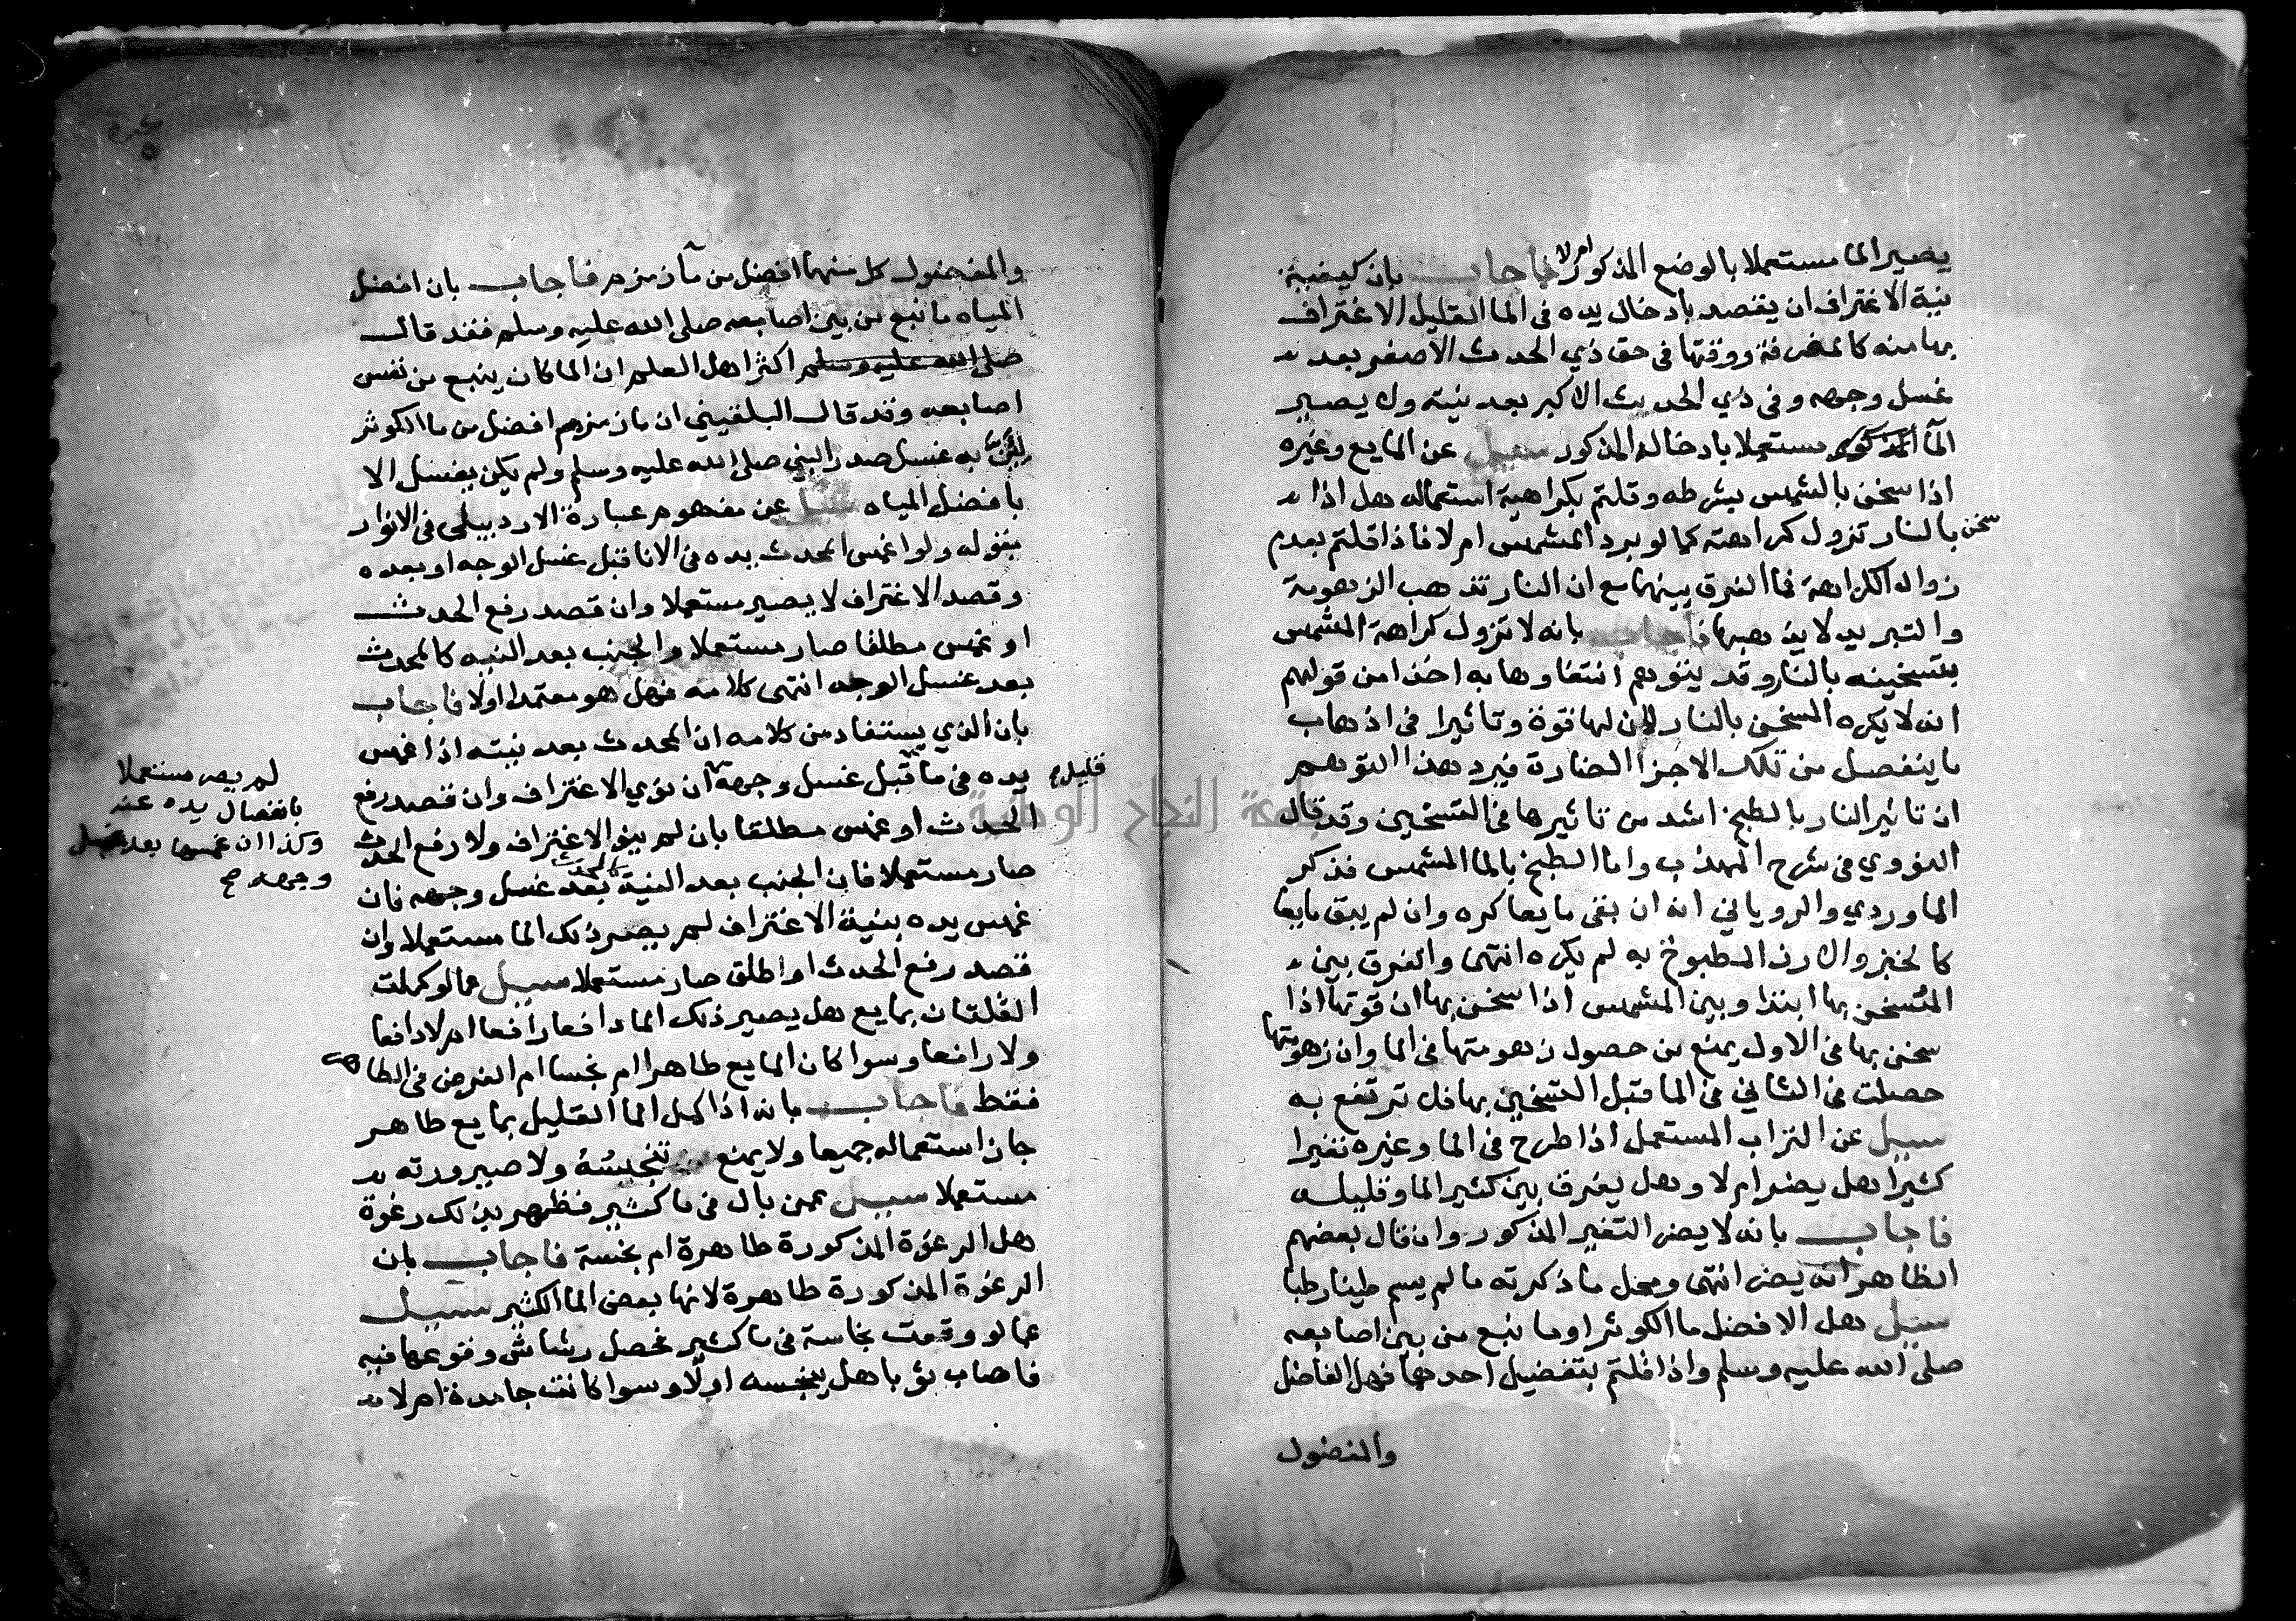 يصير الما مستعملا بالوضع المذكور ام لا فاجاب بان كيفية
نية الاغتراف ان يقصد بادخال يده في الما القليل الاغتراف
بها منه كالمغرفة ووقتها في حق ذي الحدث الاصغر بعد
غسل وجهه وفي ذي الحدث الاكبر بعد نيته ولا يصير
الما المذكور مستعملا بادخاله المذكور سيل عن المايع وغيره
اذا سخن بالشمس بشرطه وقلتم بكراهية استعماله هل اذا
سخن بالنار تزول كراهته كما لو برد المشمس ام لا فاذا قلتم بعدم
زوال الكراهة فما الفرق بينهما مع ان النار تذهب الزهومة
والتبريد لا يذهبها فاجاب بانه لا تزول كراهة المشمس
بتسخينه بالنار وقد يتوهم انتفاوها به اخذا من قولهم
انه لا يكره المسخن بالنار لان لها قوة وتاثيرا في اذهاب
ما ينفصل من تلك الاجزا الضارة فيرد هذا التوهم
ان تاثير النار بالطبخ اشد من تاثيرها في التسخين وقد قال
النووي في شرح المهذب واما الطبخ بالما المشمس فذكر
الماوردي والروياني انه ان بقى مايعا كره وان لم يبق مايعا
كالخبز والارز المطبوخ به لم يكره انتهى والفرق بين
المسخن بها ابتدا وبين المشمس اذا سخن بها ان قوتها اذا
سخن بها في الاول يمنع من حصول زهومتها في الما وان زهومتها
حصلت في الثاني في الما قبل التسخين بها فلا ترتفع به
سيل عن التراب المستعمل اذا طرح في الما وغيره تغيرا
كثيرا هل يضر ام لا وهل يفرق بين كثير الما وقليله
فاجاب بانه لا يضر التغير المذكور وان قال بعضهم
الظاهر انه يضر انتهى ومحل ما ذكرته ما لم يسم طينا رطبا
سيل هل الافضل ما الكوثر او ما نبع من بين اصابعه
صلى الله عليه وسلم واذا قلتم بتفضيل احدهما فهل الفاضل
والمفضول
والمفضول كل منهما افضل من ما زمزم فاجاب بان افضل
المياه ما نبع من بين اصابعه صلى الله عليه وسلم فقد قال
صلى الله عليه وسلم اكثر اهل العلم ان الما كان ينبع من نفس
اصابعه وقد قال البلقيني ان ما زمزم افضل من ما الكوثر
لان به غسل صدر النبي صلى الله عليه وسلم ولم يكن يغسل الا
بافضل المياه سيل عن مفهوم عبارة الاردبيلي في الانوار
بقوله ولو اغمس المحدث يده في الانا قبل غسل الوجه او بعده
وقصد الاغتراف لا يصير مستعملا وان قصد رفع الحدث
او غمس مطلقا صار مستعملا والجنب بعد النية كالمحدث
بعد غسل الوجه انتهى كلامه فهل هو معتمد او لا فاجاب
بان الذي يستفاد من كلامه ان المحدث بعد نيته اذا غمس
يده في ما قليل قبل غسل وجهه ان نوي الاغتراف وان قصد رفع
لم يصر مستعملا
بانفصال يده عنه
وكذا ان غمسها بعد غسل
وجهه صح
الحدث او غمس مطلقا بان لم ينو الاغتراف ولا رفع الحدث
صار مستعملا فان الجنب بعد النية كالمحدث بعد غسل وجهه فان
غمس يده بنية الاغتراف لم يصر ذلك الما مستعملا وان
قصد رفع الحدث او اطلق صار مستعملا سيل عما لو كملت
القلتان بمايع هل يصير ذلك الما دافعا رافعا ام لا دافعا
ولا رافعا وسوا كان المايع طاهرا ام نجسا ام الفرض في الطاهر
فقط فاجاب بانه اذا كمل الما القليل بمايع طاهر
جاز استعماله جميعا ولا يمنع تنجيسه ولا صيرورته
مستعملا سيل عمن بال في ما كثير فظهر بذلك رغوة
هل الرغوة المذكورة طاهرة ام نجسة فاجاب بان
الرغوة المذكورة طاهرة لانها بعض الما الكثير سيل
عما لو وقعت نجاسة في ما كثير فحصل رشاش وقوعها فيه
فاصاب ثوبا هل ينجسه او لا وسوا كانت جامدة ام لا
جامعة النجاح الوطنية